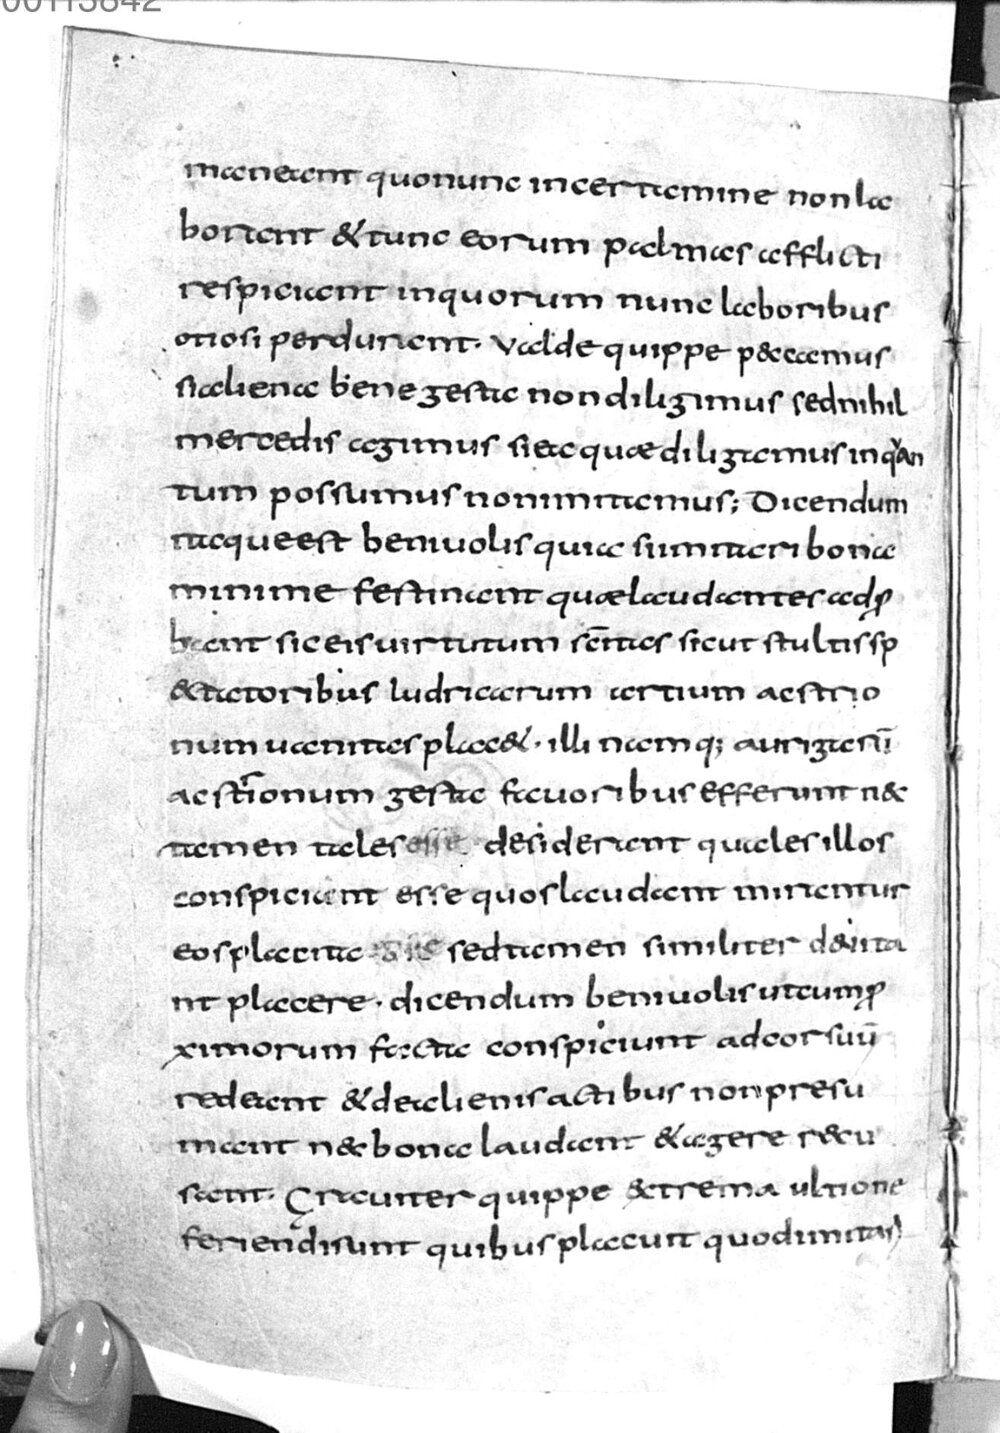 00113842
maneant quonunc incertamine nonla
borant & tunc eorum palmas afflicti
respiciant inquorum nunc laboribus
otiosi perdurant. Valde quippe peccamus
sialiena bene gesta nondiligimus sednihil
mercedis agimus siea quae diligamus inquan
tum possumus nonimitamus; Dicendum
itaqueest beniuolis quia siimitari bona
minime festinant quaelaudantes adp
bant sic eis uirtutum scītas sicut stultis sp
&tatoribus ludricarum artium aestrio
num uanitas placet. illi namq; aurigarū
ac strionum gesta fauoribus efferunt nec
tamen tales esse desiderant quales illos
conspiciant esse quos laudant mirantur
eos placita sedtamen similiter deuita
nt placere. dicendum beniuolis utcump
ximorum facta conspiciunt adcorsuū
redeant &dealienis actibus nonpresu
mant nec bona laudant &agere recu
sant. Grauiter quippe extrema ultione
feriendisunt quibus placuit quodimitari